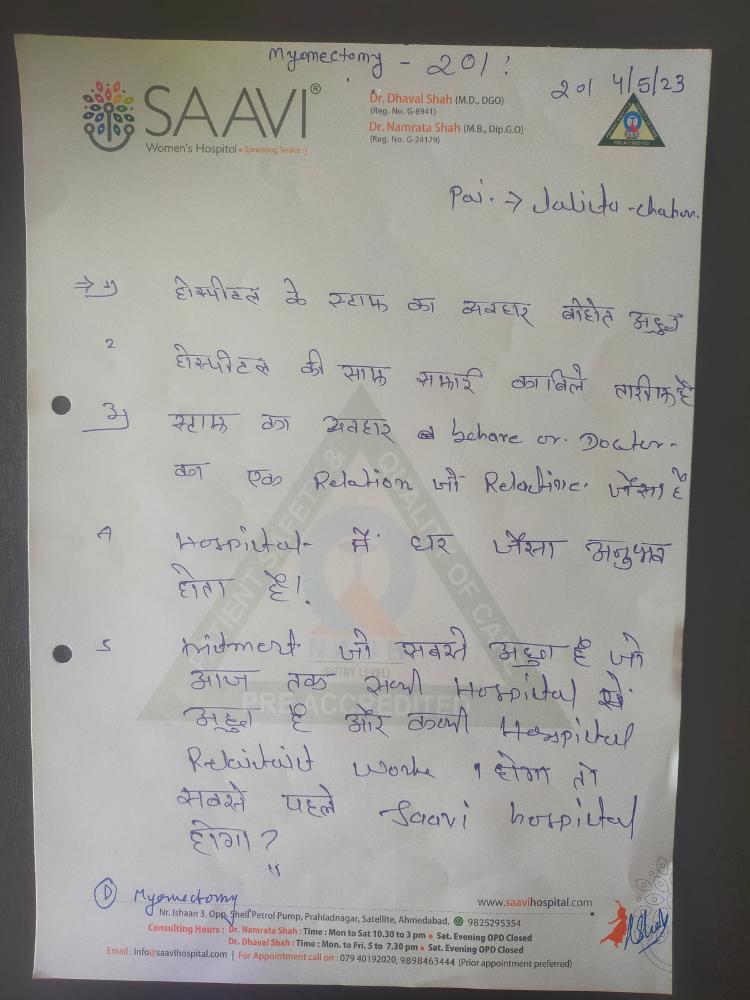 Myomectomy - 201 :
201 4/5/23
SAAVI®
Women's Hospital • Spreading Smiles :)
Dr. Dhaval Shah (M.D., DGO)
(Reg. No. G-8941)
Dr. Namrata Shah (M.B., Dip.G.O)
(Reg. No. G-24179)
PRE ACCREDITED
Pai. →
⇒ 1) होस्पीटल के स्टाफ का व्यवहार बोहोत अच्छा
2 होस्पीटल की साफ सफाई काबिले तारीफ है
3) स्टाफ का व्यवहार behave or. Doctor-
का एक Relation जो Relactine. जैसा है
4 Hospital- में घर जैसा अनुभव
होता है।.
5 जो सबसे अच्छा है जो
आज तक सभी Hospital से
अच्छा है और कभी Hospital
Relaitait worke होगा तो
सबसे पहले Saavi hospital
होगा?
PATIENT SAFETY & QUALITY OF CARE
(ENTRY LEVEL)
PRE ACCREDITED
① Myomectomy
www.saavihospital.com
Nr. Ishaan 3, Opp. Shell Petrol Pump, Prahladnagar, Satellite, Ahmedabad. 9825295354
Consulting Hours : Dr. Namrata Shah : Time : Mon to Sat 10.30 to 3 pm • Sat. Evening OPD Closed
Dr. Dhaval Shah : Time : Mon. to Fri. 5 to 7.30 pm • Sat. Evening OPD Closed
Email : info@saavihospital.com | For Appointment call on : 079 40192020, 9898463444 (Prior appointment preferred)